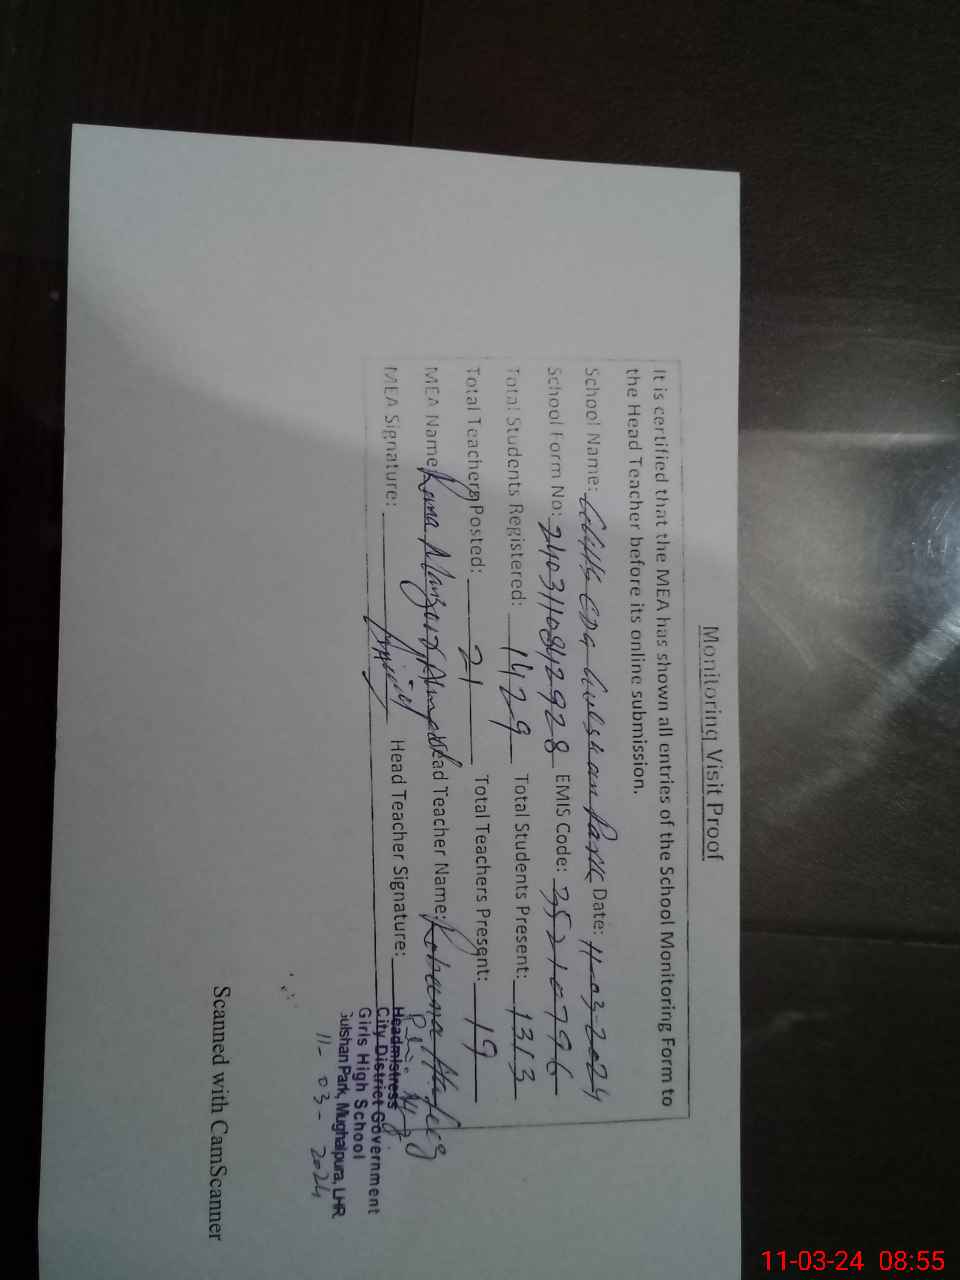 Monitoring Visit Proof
It is certified that the MEA has shown all entries of the School Monitoring Form to
the Head Teacher before its online submission.
School Name: CDG Gulshan Park Date: 11-03-2024
School Form No: 2403110842928 EMIS Code: 35210796
Total Students Registered: 1429 Total Students Present: 1313
Total Teachers Posted: 21 Total Teachers Present: 19
MEA Name: Rana Manzoor Ahmed Head Teacher Name: Rubeena Hafeez
MEA Signature: Head Teacher Signature:
Headmistress
City District Government
Girls High School
Gulshan Park, Mughalpura, LHR
11-03-2024
Scanned with CamScanner
11-03-24 08:55